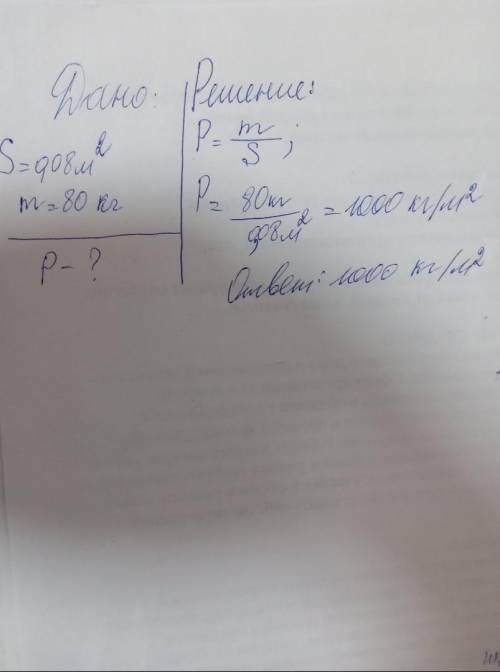 Дано:
S = 0,08 м²
m = 80 кг
P - ?
Решение:
P = m/S ;
P = 80кг/0,08м² = 1000 кг/м²
Ответ: 1000 кг/м²